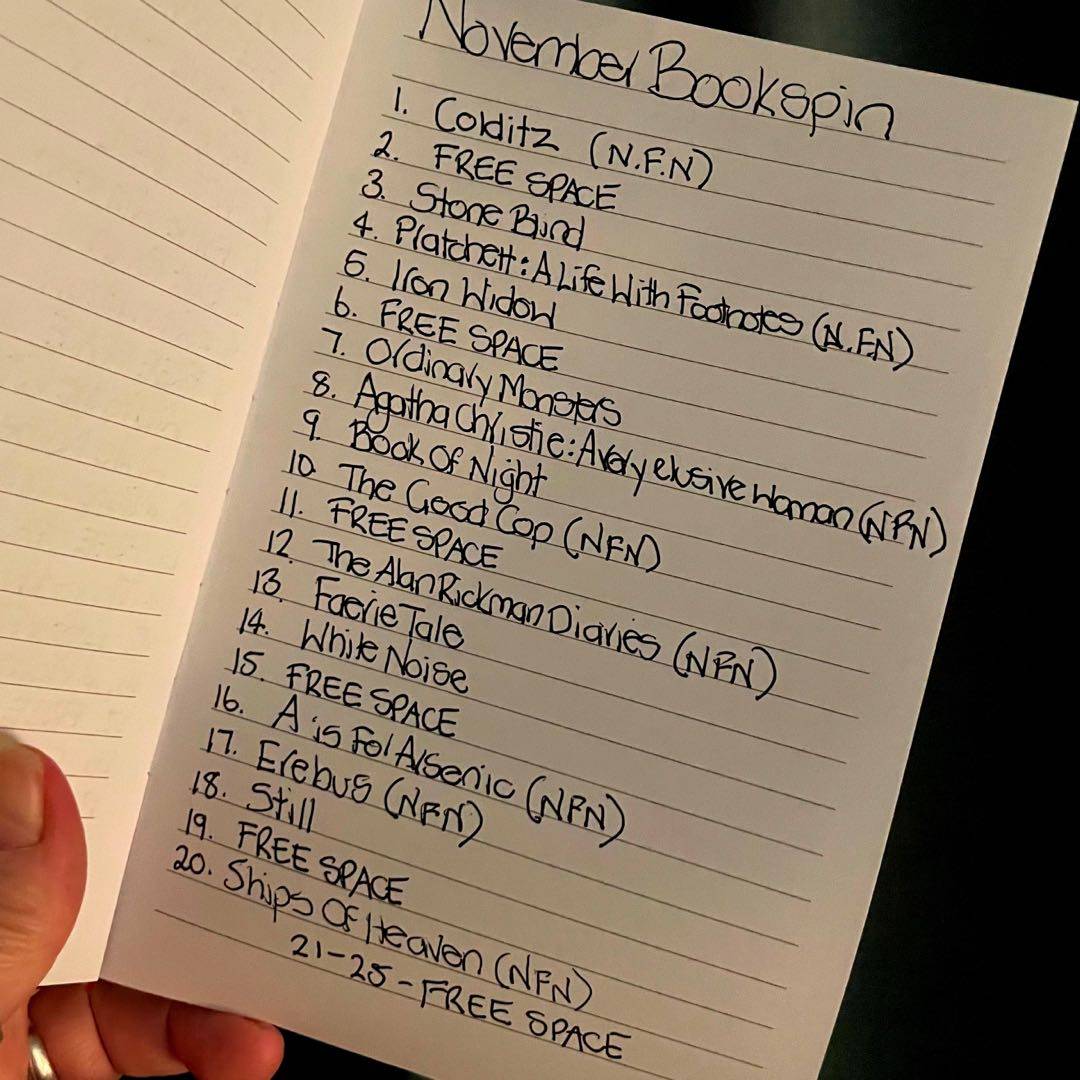 November Bookspin
1. Colditz (N.F.N)
2. FREE SPACE
3. Stone Blind
4. Pratchett: A Life With Footnotes (N.F.N)
5. Iron Widow
6. FREE SPACE
7. Ordinary Monsters
8. Agatha Christie: A very elusive woman (NFN)
9. Book Of Night
10. The Good Cop (NFN)
11. FREE SPACE
12. The Alan Rickman Diaries (NFN)
13. Faerie Tale
14. White Noise
15. FREE SPACE
16. A is For Arsenic (NFN)
17. Erebus (NFN)
18. Still
19. FREE SPACE
20. Ships Of Heaven (NFN)
21-25 - FREE SPACE